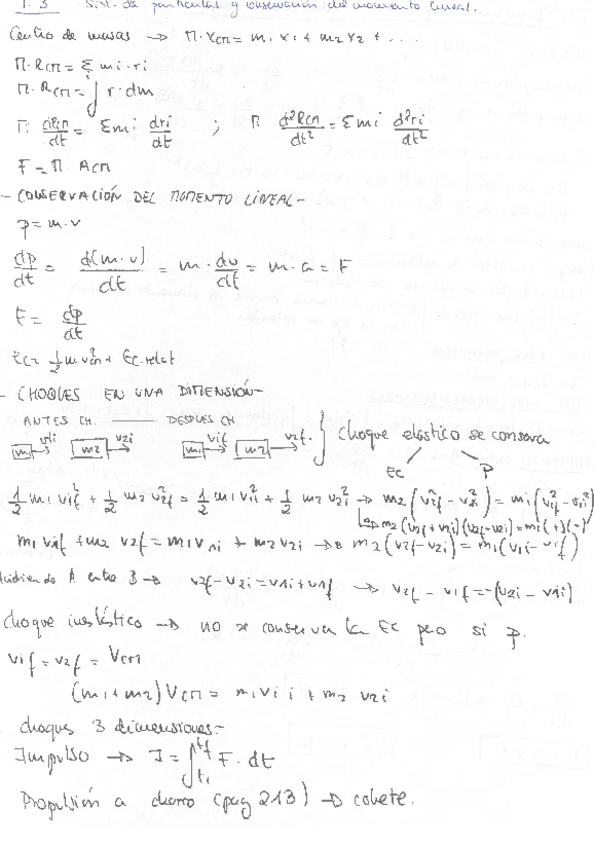 T. 3 Sist. de partículas y conservación del momento lineal.
Centro de masas → M·Xcm = m1 x1 + m2 x2 + ...
M·Rcm = Σ mi·ri
M·Rcm = ∫ r·dm
M· dRcm/dt = Σ mi dri/dt ; M d²Rcm/dt² = Σ mi d²ri/dt²
F = M·Acm
- CONSERVACIÓN DEL MOMENTO LINEAL -
p = m·v
dp/dt = d(m·v)/dt = m·dv/dt = m·a = F
F = dp/dt
Ec = 1/2 m v²cm + Ec.relat
- CHOQUES EN UNA DIMENSIÓN -
ANTES CH. DESPUES CH.
m1 v1i m2 v2i m1 v1f m2 v2f. } Choque elástico se conserva
Ec P
1/2 m1 v1f² + 1/2 m2 v2f² = 1/2 m1 v1i² + 1/2 m2 v2i² → m2(v2f² - v2i²) = m1(v1f² - v1i²)
↳ m2(v2f + v2i)(v2f - v2i) = m1(+)(-)
m1 v1f + m2 v2f = m1 v1i + m2 v2i → B m2(v2f - v2i) = m1(v1i - v1f)
dividiendo A entre B → v2f - v2i = v1i + v1f → v2f - v1f = -(v2i - v1i)
Choque inelástico → no se conserva la Ec pero si p.
v1f = v2f = Vcm
(m1 + m2) Vcm = m1 v1i + m2 v2i
choques 3 dimensiones -
Impulso → I = ∫ti tf F·dt
Propulsión a chorro (pag 213) → cohete.